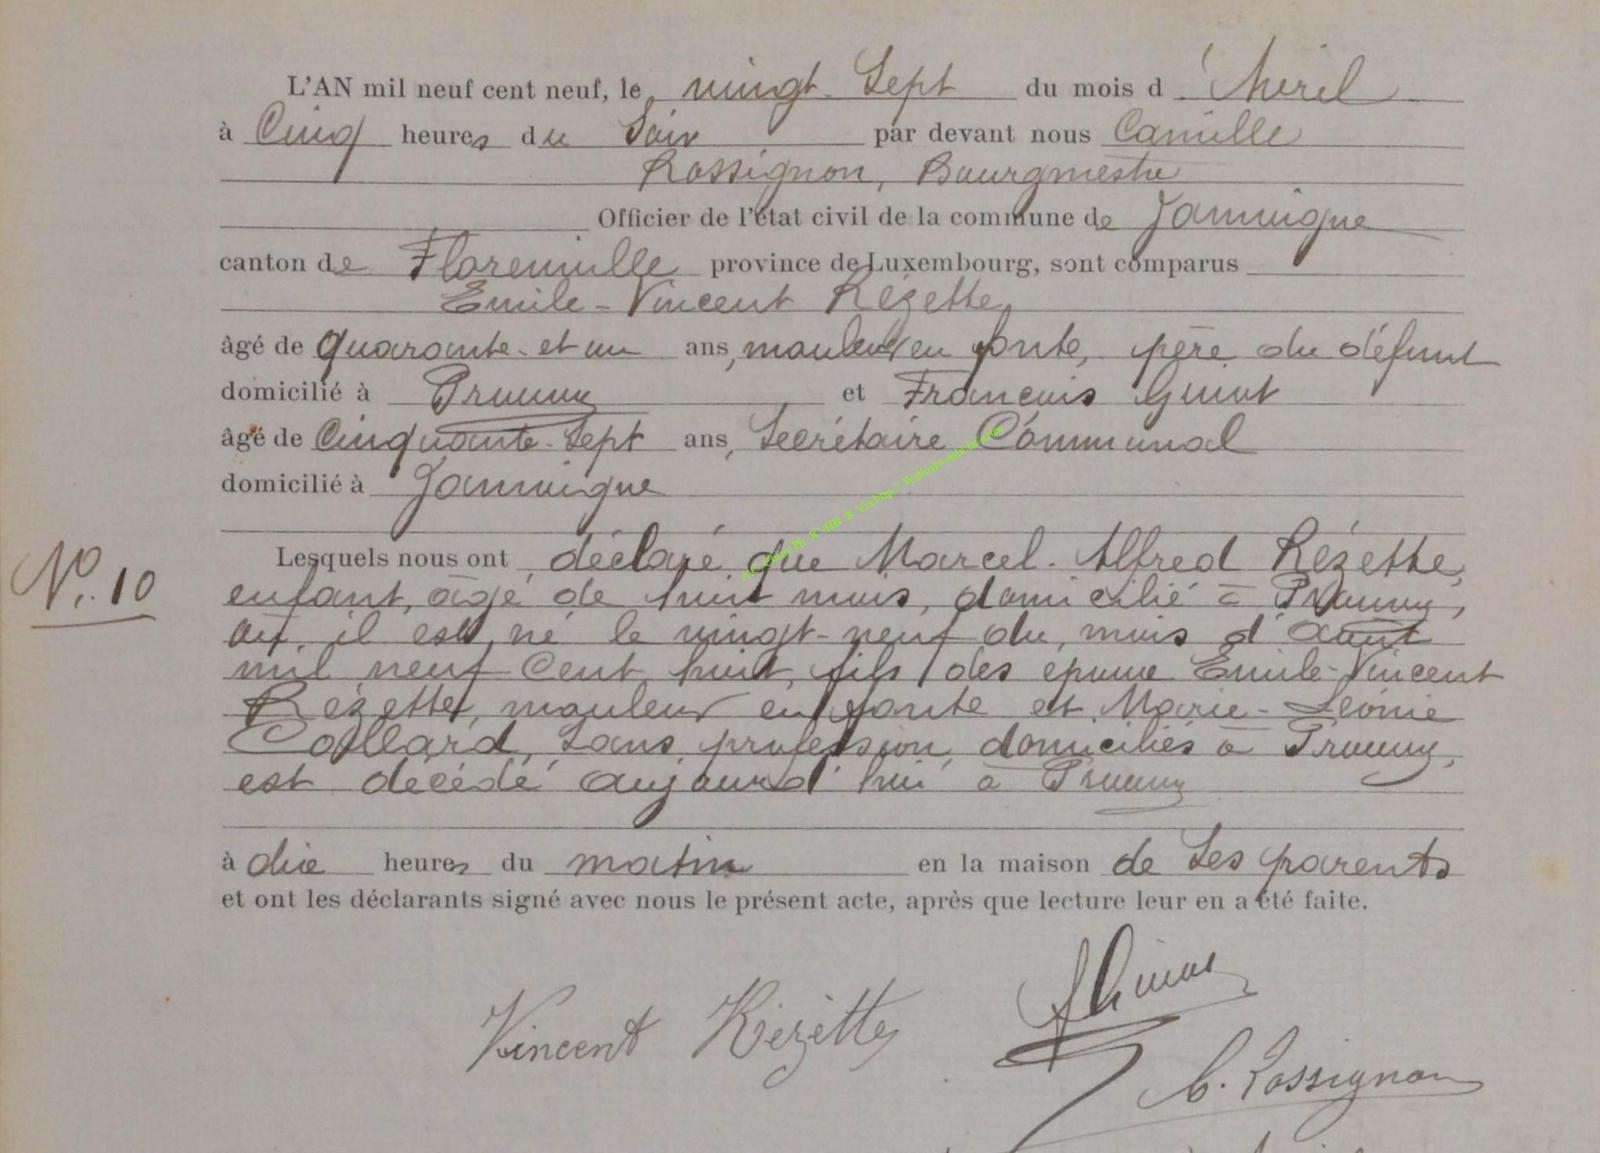 L'AN mil neuf cent neuf, le vingt-sept du mois d'Avril
à Cinq heures du soir par devant nous Camille
Rossignon, Bourgmestre
Officier de l'état civil de la commune de Jamoigne
canton de Florenville province de Luxembourg, sont comparus
Emile-Vincent Rézette,
âgé de quarante-et un ans, mouleur en fonte, père du défunt
domicilié à Prouvy et François Guiot
âgé de Cinquante-sept ans, Secrétaire Communal
domicilié à Jamoigne
Lesquels nous ont déclaré que Marcel-Alfred Rézette,
N° 10
enfant, âgé de huit mois, domicilié à Prouvy,
où il est né le vingt-neuf du mois d'août
mil neuf cent huit, fils des époux Emile-Vincent
Rézette, mouleur en fonte et Marie-Léonie
Collard, sans profession, domiciliés à Prouvy,
est décédé aujourd'hui à Prouvy
à dix heures du matin en la maison de ses parents
et ont les déclarants signé avec nous le présent acte, après que lecture leur en a été faite.
Vincent Rézette
C. Rossignon